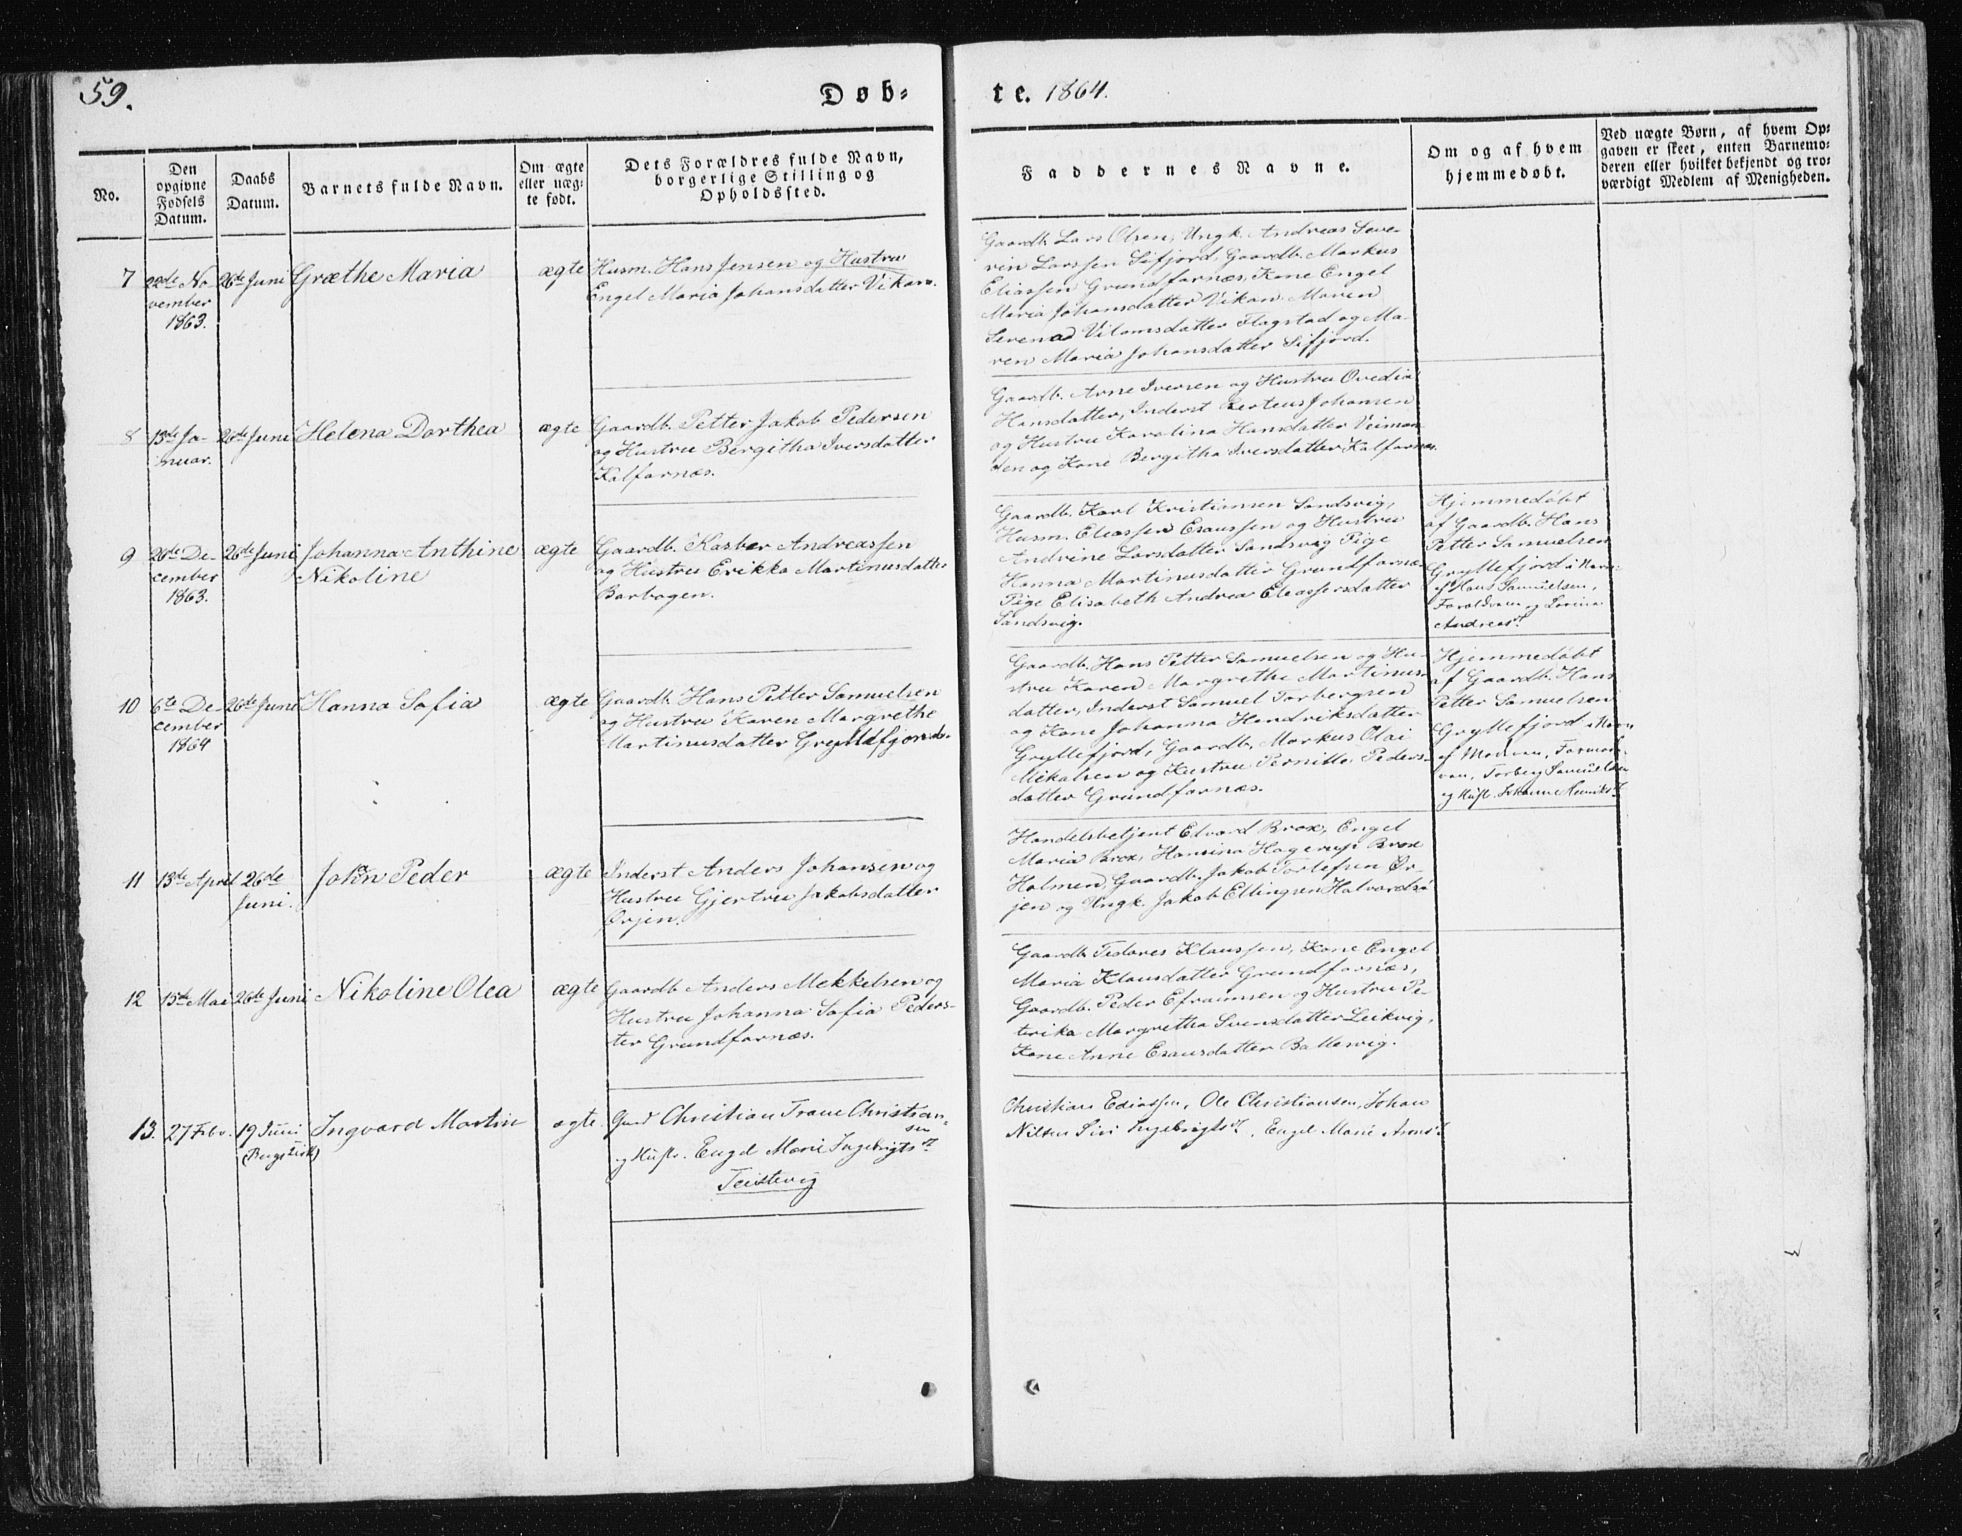 59.
Døb-
te. 1864.
No.
Den
opgivne
Fødsels
Datum.
Daabs
Datum.
Barnets fulde Navn.
Om ægte
eller uæg-
te født.
Dets Forældres fulde Navn,
borgerlige Stilling og
Opholdssted.
Faddernes Navne.
Om og af hvem
hjemmedøbt.
Ved uægte Børn, af hvem Op-
gaven er skeet, enten Barnemo-
deren eller hvilket bekjendt og tro-
værdigt Medlem af Menigheden.
7
22de No-
vember
1863.
26de Juni
Græthe Maria
ægte
Husm. Hans Jensen og Hustru
Engel Maria Johansdatter Vikan.
Gaardb. Lars Olsen, Ungk. Andreas Seve-
rin Larssen Sifjord, Gaardb. Markus
Eliassen Grundfarnæs, Kone Engel
Maria Johansdatter Vikan. Maren
Vilamsdatter Flagstad og Ma-
ren Maria Johansdatter Sifjord.
8
13de Ja-
nuar.
26de Juni
Helena Dorthea
ægte
Gaardb. Petter Jakob Pedersen
og Hustru Bergitha Iversdatter
Kalfarnæs.
Gaardb. Arne Iversen og Hustru Ovedia
Hansdatter, Inderst Johansen
og Hustru Karolina Hansdatter Veiman
den og Kone Bergitha Iversdatter Kalfarnæs.
9
26de De-
cember
1863.
26de Juni
Johanna Anthine
Nikoline
ægte
Gaardb. Kasber Andreassen
og Hustru Erikka Martinusdatter
Barbogen.
Gaardb. Karl Kristiansen Sandsvig,
Husm. Eleassen Esaussen og Hustru
Andrine Larsdatter Sandsvig Pige
Hanna Martinusdatter Grundfarnæs
Pige Elisabeth Andrea Eleassersdatter
Sandsvig.
Hjemmedøbt
af Gaardb. Hans
Petter Samuelsen
Gryllefjord i Nærv.
af Hans Samuelsen,
og
Andreasd.
10
6te De-
cember
1864
26de Juni
Hanna Sofia
ægte
Gaardb. Hans Petter Samuelsen
og Hustru Karen Margrethe
Martinusdatter Gryllefjord.
Gaardb. Hans Petter Samuelsen og Hu-
stru Karen Margrethe Martinus-
datter, Inderst Samuel Torbergsen
og Kone Johanna Hendriksdatter
Gryllefjord, Gaardb. Markus Olai
Mikalsen og Hustru Pernille Peders-
datter Grundfarnæs.
Hjemmedøbt
af Gaardb. Hans
Petter Samuelsen
Gryllefjord i Nærv.
af Moderen, Farmode-
ren, Torberg Samuelsen
og Hust. Johanne Henriksd.
11
13de April
26de
Juni.
Johan Peder
ægte
Inderst Anders Johansen og
Hustru Gjertru Jakobsdatter
Ørjen.
Handelsbetjent Edvard Brox, Engel
Maria Brox, Hansina Hagerup Brox
Holmen, Gaardb. Jakob Torlefsen Ør-
jen og Ungk. Jakob Ellingsen Halvardsø
12
15de Mai
26de Juni
Nikoline Olea
ægte
Gaardb. Anders Mekkelsen og
Hustru Johanna Sofia Peders-
ter Grundfarnæs.
Gaardb. Tedares Klaussen, Kone Engel
Maria Klausdatter Grundfarnæs,
Gaardb. Peder Efraimsen og Hustru Pe-
terika Margretha Svensdatter Leikvig,
Kone Anne Esausdatter Ballesvig.
13.
27 Febr.
19 Juni
(Bergs Kirk)
Ingvard Martin
ægte
Gaard Christian Trane Christian-
sen
og Hustr. Engel Marie Ingebrigtsd.
Teistevig
Christian Ediassen, Ole Christiansen, Johan
Nilsen Siri Ingebrigtsd., Engel Marie Aronsd.